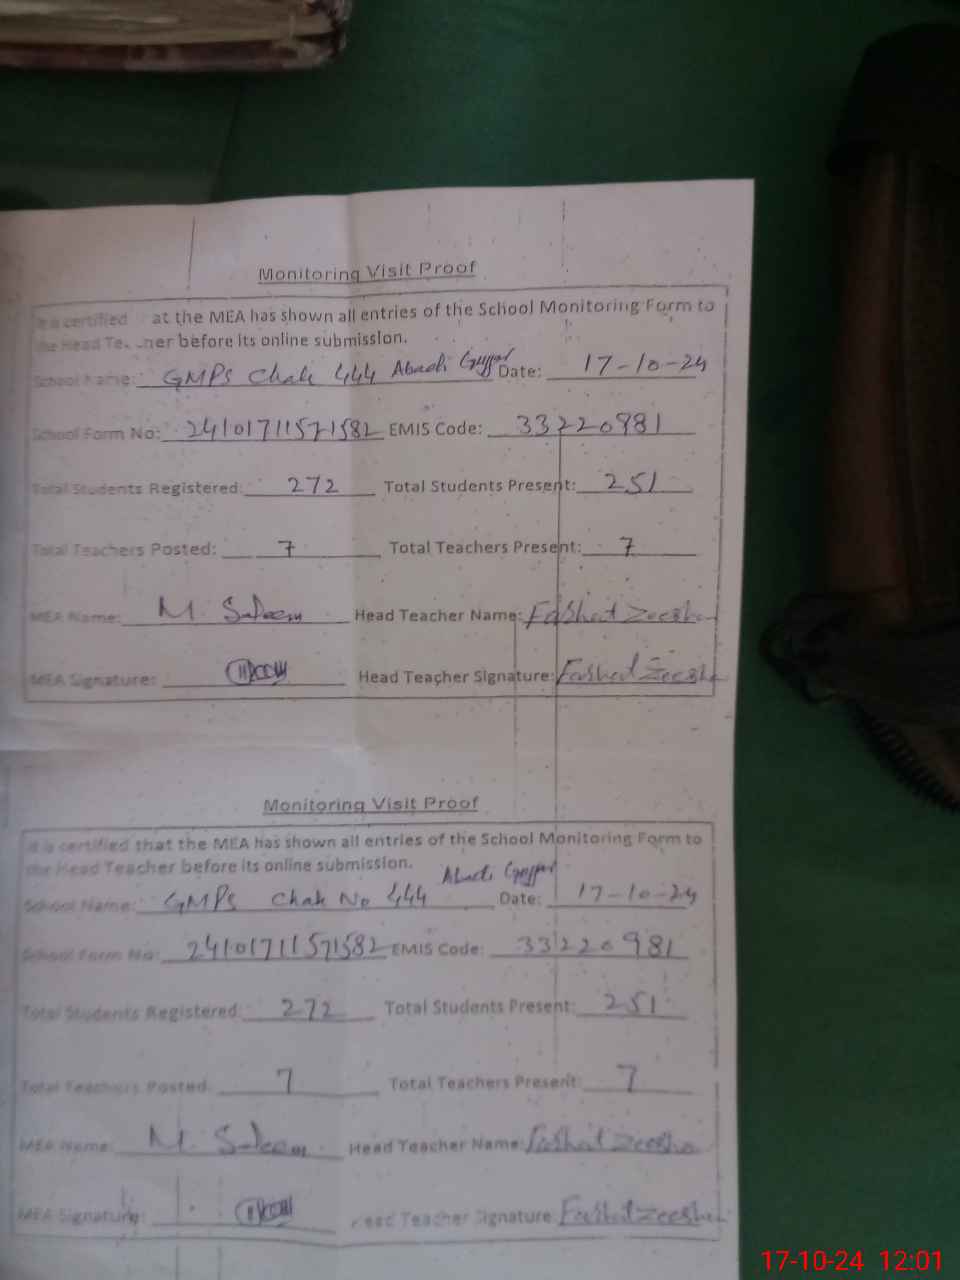 Monitoring Visit Proof
It is certified at the MEA has shown all entries of the School Monitoring Form to
the Head Te..ner before its online submission.
School Name: GMPS Chak 444 Abadi Gujjar Date: 17-10-24
School Form No: 24101711571582 EMIS Code: 33220981
Total Students Registered: 272 Total Students Present: 251
Total Teachers Posted: 7 Total Teachers Present: 7
MEA Name: M. Saleem Head Teacher Name: Farhat Zeesha
MEA Signature: Head Teacher Signature: Farhat Zeesha
Monitoring Visit Proof
It is certified that the MEA has shown all entries of the School Monitoring Form to
the Head Teacher before its online submission.
Abadi Gujjar
School Name: GMPS Chak No 444 Date: 17-10-24
School Form No: 24101711571582 EMIS Code: 33220981
Total Students Registered: 272 Total Students Present: 251
Total Teachers Posted: 7 Total Teachers Present: 7
MEA Name: M. Saleem Head Teacher Name: Farhat Zeesha
MEA Signature: Head Teacher Signature Farhat Zeesha
17-10-24 12:01